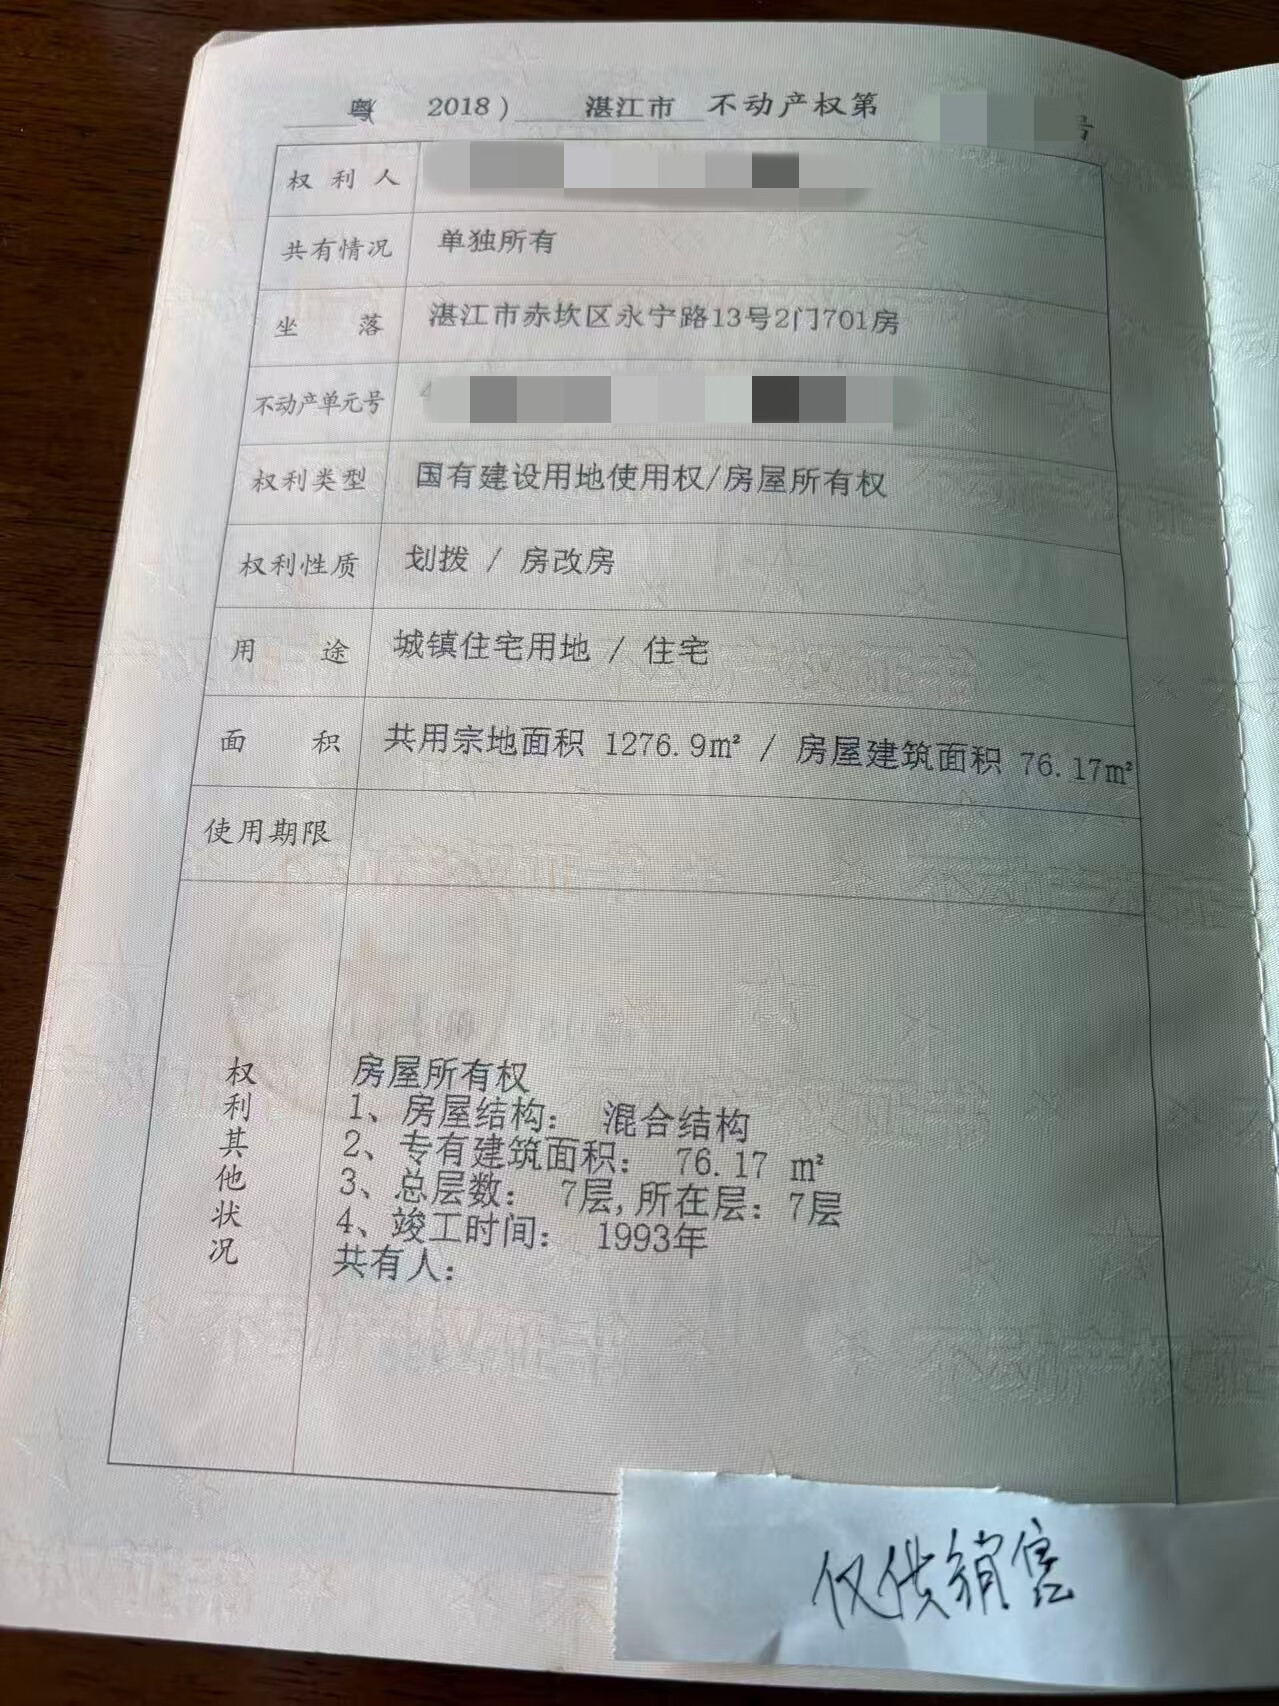 粤( 2018) 湛江市 不动产权第 号
权利人
共有情况 单独所有
坐落 湛江市赤坎区永宁路13号2门701房
不动产单元号
权利类型 国有建设用地使用权/房屋所有权
权利性质 划拨 / 房改房
用途 城镇住宅用地 / 住宅
面积 共用宗地面积 1276.9㎡ / 房屋建筑面积 76.17㎡
使用期限
权利其他状况
房屋所有权
1、房屋结构： 混合结构
2、专有建筑面积： 76.17 ㎡
3、总层数： 7层,所在层：7层
4、竣工时间： 1993年
共有人：
仅供销售